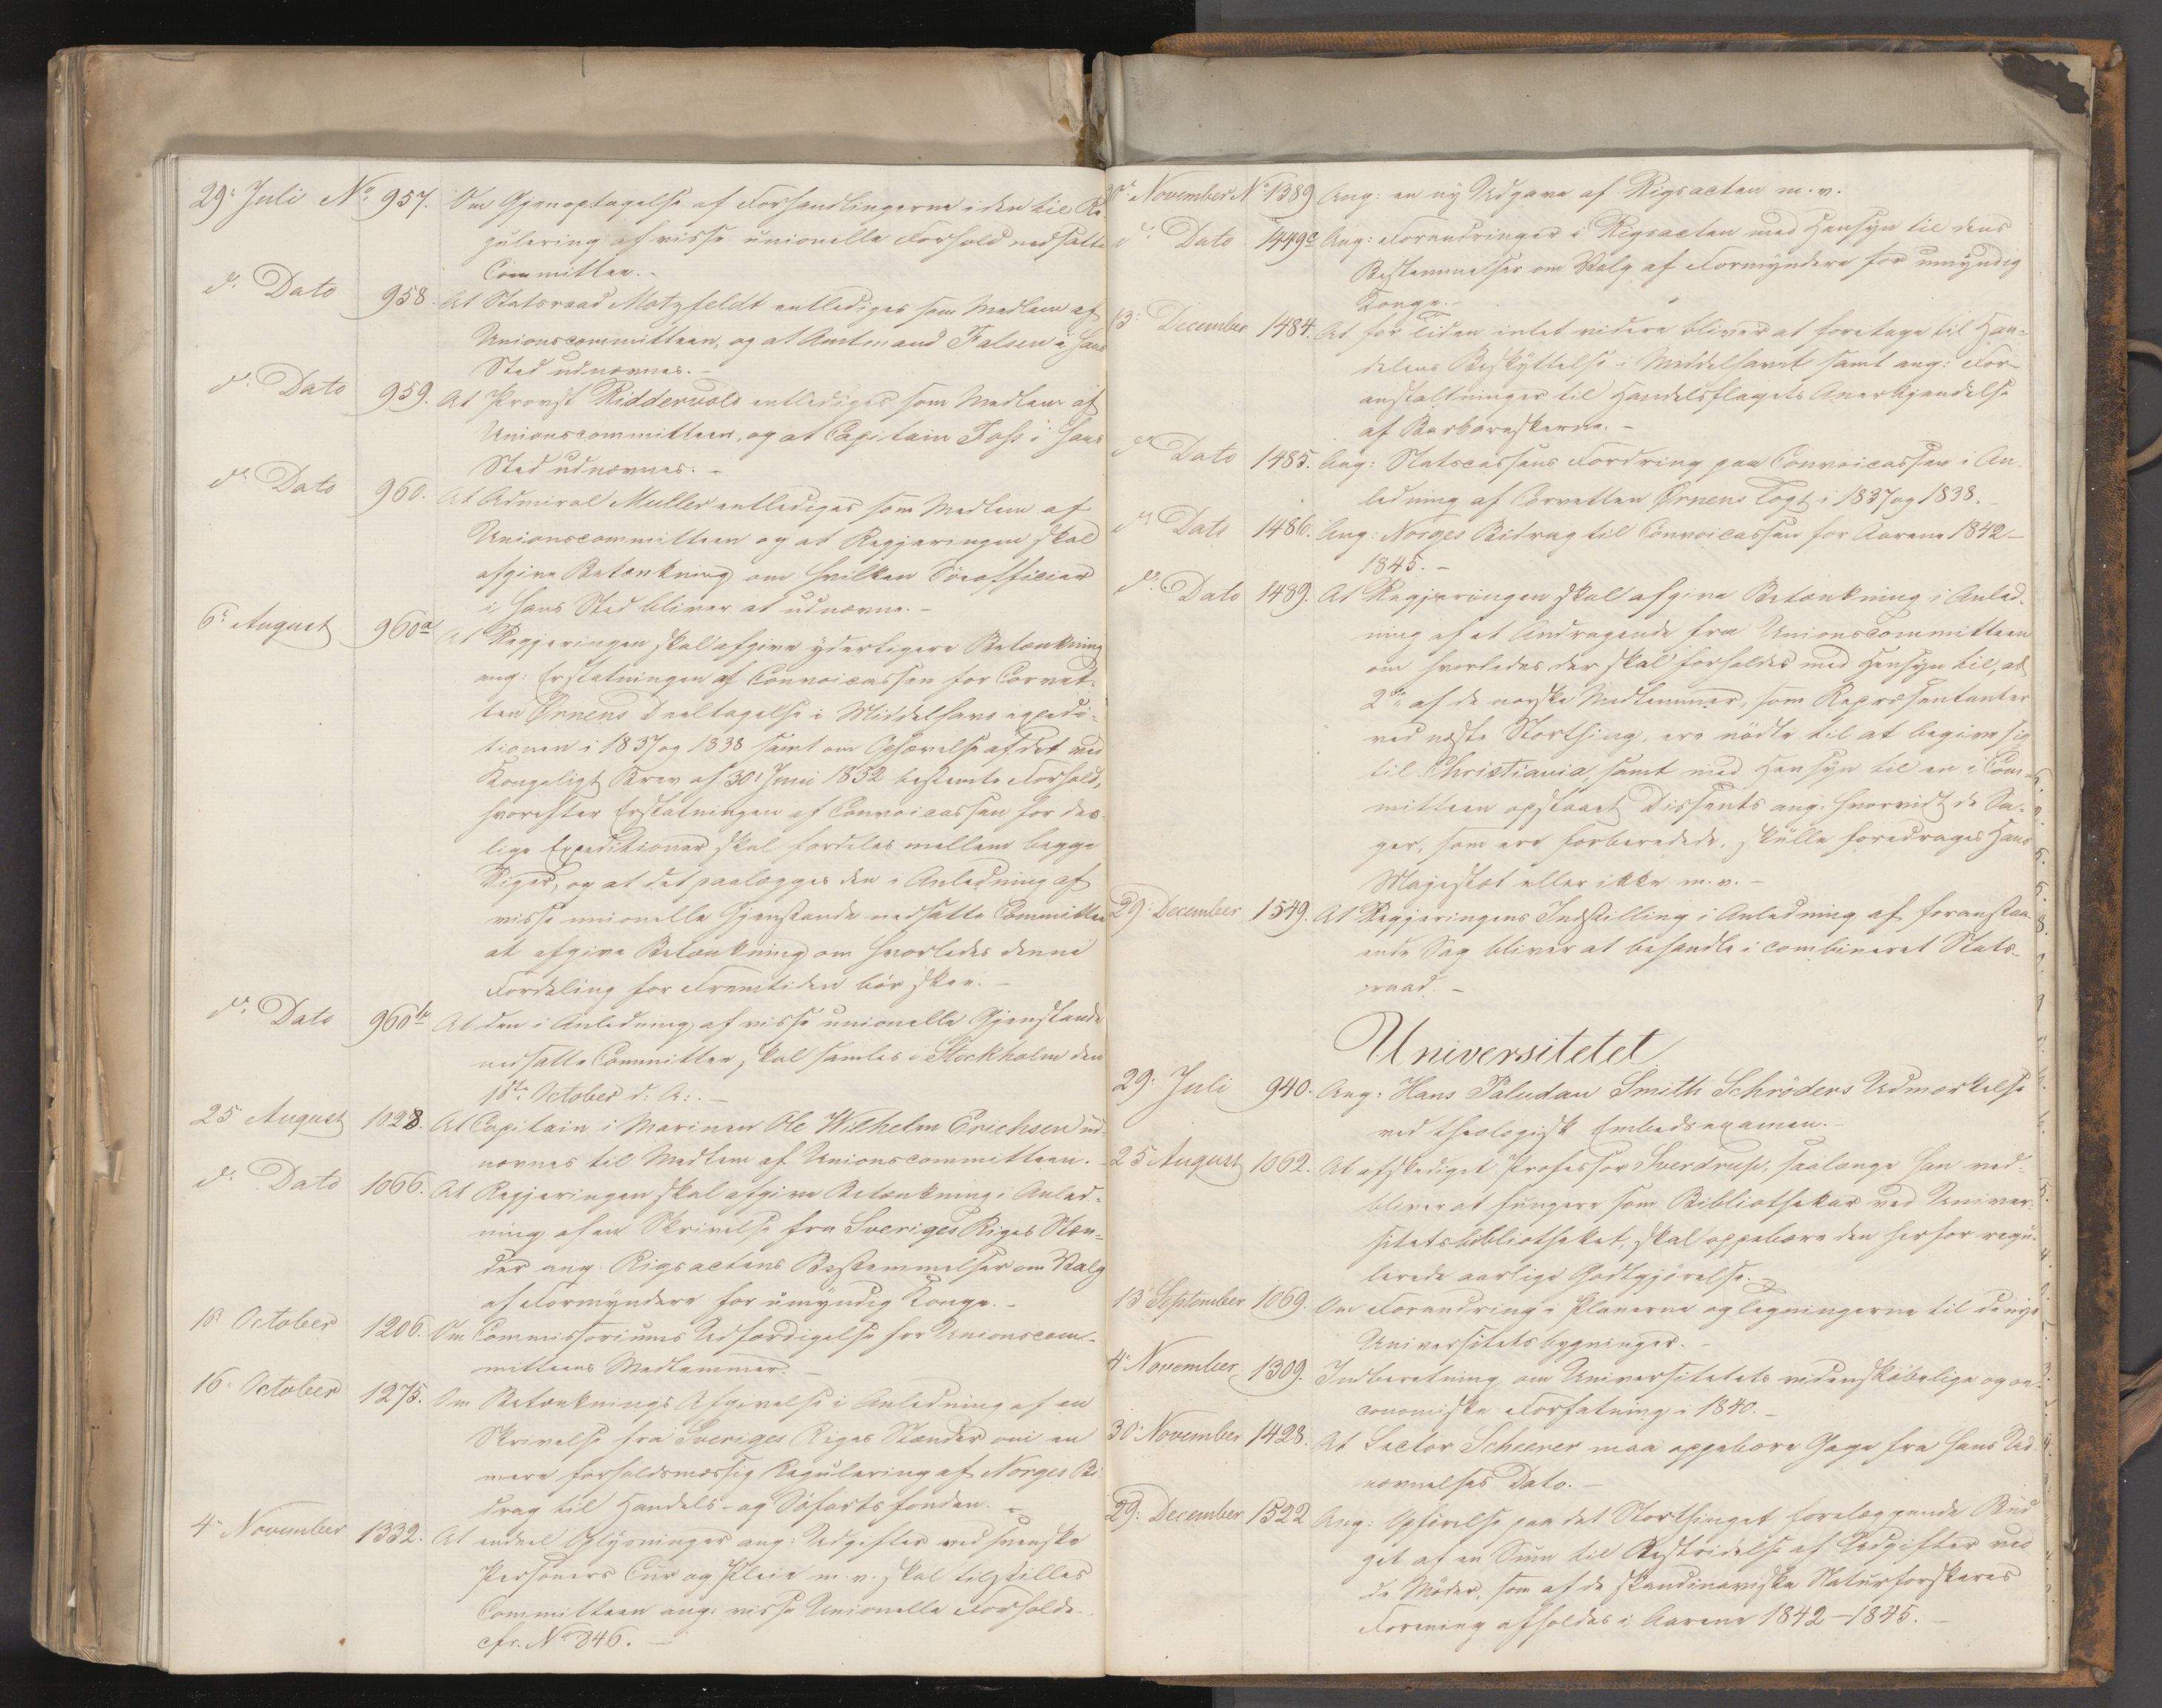 29: Juli No 957. Om Gjenoptagelse af Forhandlingerne i den til Re-
gulering af visse unionelle Forhold nedsatte
Committee. -
d: Dato 958. At Statsraad Motzfeldt entlediges som Medlem af
Unionscommitteen, og at Amtmand Falsen i hans
Sted udnævnes. -
d: Dato 959. At Provst Riddervold entlediges som Medlem af
Unionscommitteen, og at Capitain Foss i hans
Sted udnævnes. -
d: Dato 960. At Admiral Muller entlediges som Medlem af
Unionscommitteen og at Regjeringen skal
afgive Betænkning om hvilken Söeofficier
i hans Sted bliver at udnævne. -
6: August 960a At Regjeringen skal afgive yderligere Betænkning
ang: Erstatningen af Convoicassen for Corvet-
ten Ørnens Deeltagelse i Middelhavs expedi-
tionen i 1837 og 1838 samt om Ophævelse af det ved
Kongeligt Brev af 30: Juni 1832 bestemte Forhold,
hvorefter Erstatningen af Convoicassen for des-
lige Expeditioner skal fordeles mellem begge
Riger, og at det paalægges den i Anledning af
visse unionelle Gjenstande nedsatte Committee
at afgive Betænkning om hvorledes denne
Fordeling for Fremtiden bör skee. -
d: Dato 960b At den i Anledning af visse unionelle Gjenstande
nedsatte Committee, skal samles i Stockholm den
18de October d: A: . -
25 August 1028. At Capitain i Marinen Ole Wilhelm Erichsen ud-
nævnes til Medlem af Unionscommitteen. -
d: Dato 1066. At Regjeringen skal afgive Betænkning i Anled-
ning af en Skrivelse fra Sveriges Riges Stæn-
der ang: Rigsactens Bestemmelser om Valg
af Formyndere for umyndig Konge. -
18 October 1206. Om Commissoriums Udfærdigelse for Unionscom-
mitteens Medlemmer. -
16: October 1275. Om Betænknings Afgivelse i Anledning af en
Skrivelse fra Sveriges Riges Stænder om en
mere forholdsmæssig Regulering af Norges Bi-
drag til Handels- og Söfartsfonden. -
4: November 1332. At endeel Oplysninger ang: Udgifter ved svenske
Personers Cur og Pleie m. v. skal tilstilles
Committeen ang: visse Unionelle Forholde.
cfr. No 846. -
30: November No 1389 Ang: en ny Udgave af Rigsacten m. v.
d: Dato 1449a Ang: Forandringer i Rigsacten med Hensyn til dens
Bestemmelser om Valg af Formyndere for umyndig
Konge. -
13: December 1484. At for Tiden intet videre bliver at foretage til Han-
delens Beskyttelse i Middelhavet samt ang: For-
anstaltninger til Handelsflagets Anerkjendelse
af Barbareskerne. -
d: Dato 1485. Ang: Statscassens Fordring paa Convoicassen i An-
ledning af Corvetten Ørnens Togt i 1837 og 1838.
d: Dato 1486. Ang: Norges Bidrag til Convoicassen for Aarene 1842-
1845. -
d: Dato 1489. At Regjeringen skal afgive Betænkning i Anled-
ning af et Andragende fra Unionscommitteen
om hvorledes der skal forholdes med Hensyn til, at
2de af de norske Medlemmer, som Repræsentanter
ved næste Storthing, ere nödte til at begive sig
til Christiania, samt med Hensyn til en i Com-
mitteen opstaaet Dissents ang: hvorvidt de Sa-
ger, som ere forberedede, skulle foredrages Hans
Majestæt eller ikke m. v. -
29: December 1549. At Regjeringens Indstilling i Anledning af foranstaa-
ende Sag bliver at behandle i combineret Stats-
raad. -
Universitetet
29: Juli 940. Ang: Hans Paludan Smith Schröders Udmærkelse
ved theologisk Embedsexamen. -
25 August 1062. At afskediget Professor Sverdrup, saalænge han ved-
bliver at fungere som Bibliothekar ved Univer-
sitetsbibliotheket, skal oppebære den herfor regu-
lerede aarlige Godtgjörelse. -
13 September 1069. Om Forandring i Planerne og Tegningerne til de nye
Universitetsbygninger. -
4: November 1309. Indberetning om Universitetets videnskabelige og oe-
conomiske Forfatning i 1840. -
30: November 1428. At Lector Scheerer maa oppebære Gage fra hans Ud-
nævnelses Dato. -
29: December 1522 Ang: Opförelse paa det Storthinget forelæggende Bud-
get af en Sum til Bestridelse af Udgifter ved
de Möder, som af de skandinaviske Naturforskeres
Forening afholdes i Aarene 1842-1845. -